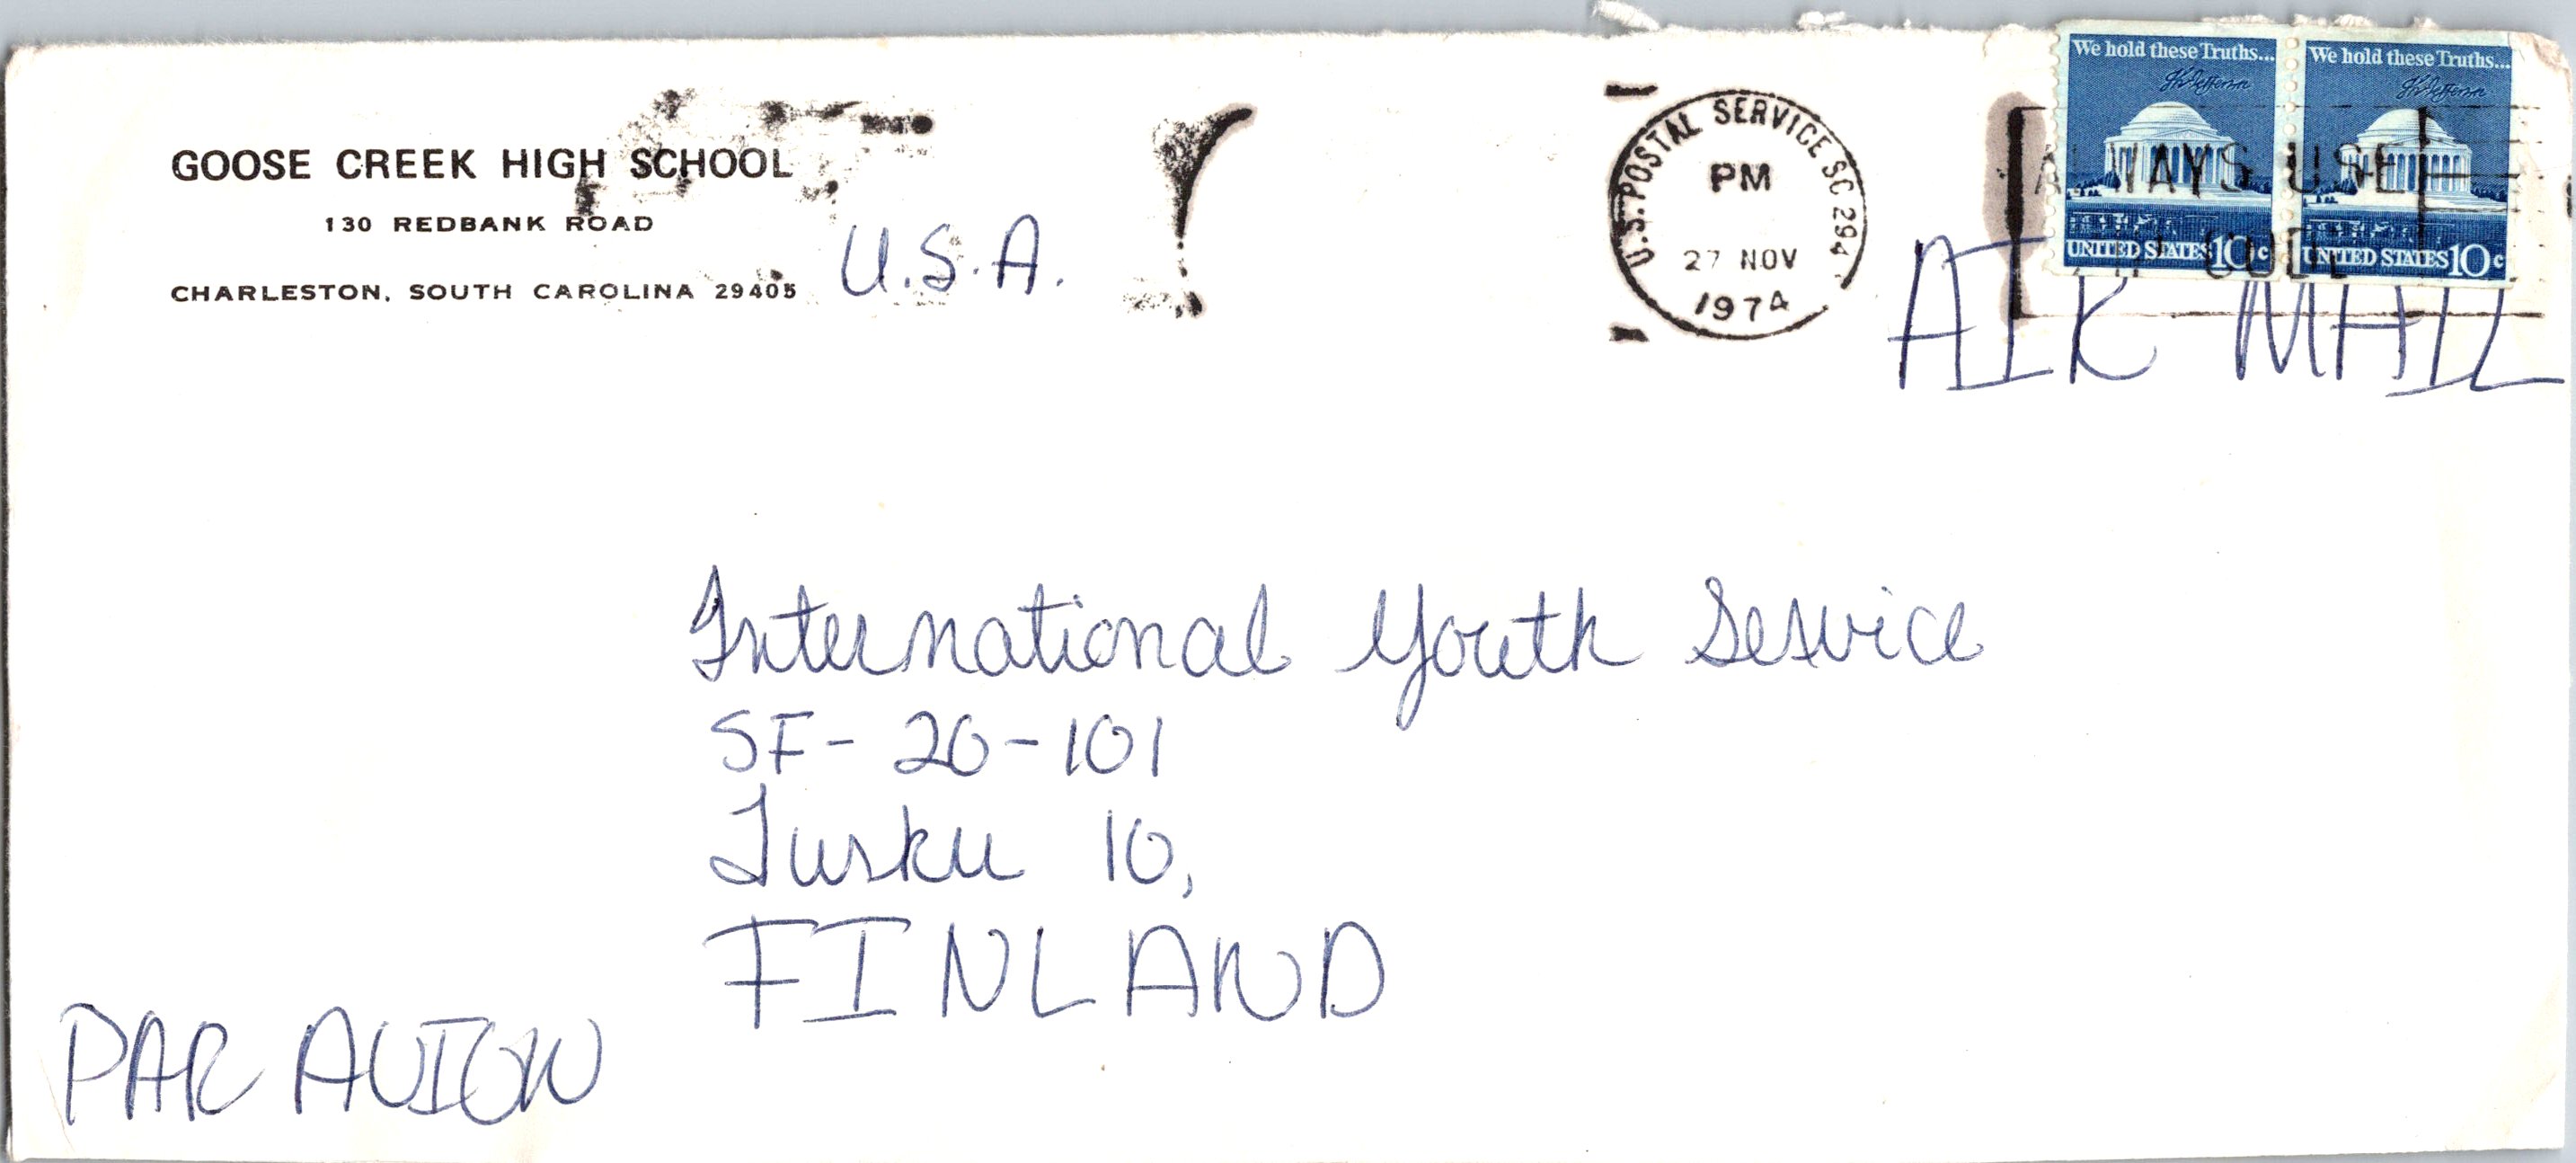 GOOSE CREEK HIGH SCHOOL
130 REDBANK ROAD
CHARLESTON, SOUTH CAROLINA 29405
U.S.A.
U.S. POSTAL SERVICE SC 294
PM
27 NOV
1974
We hold these Truths...
Th Jefferson
UNITED STATES 10c
We hold these Truths...
Th Jefferson
UNITED STATES 10c
USE
AIR MAIL
International Youth Service
SF- 20-101
Turku 10,
FINLAND
PAR AVION